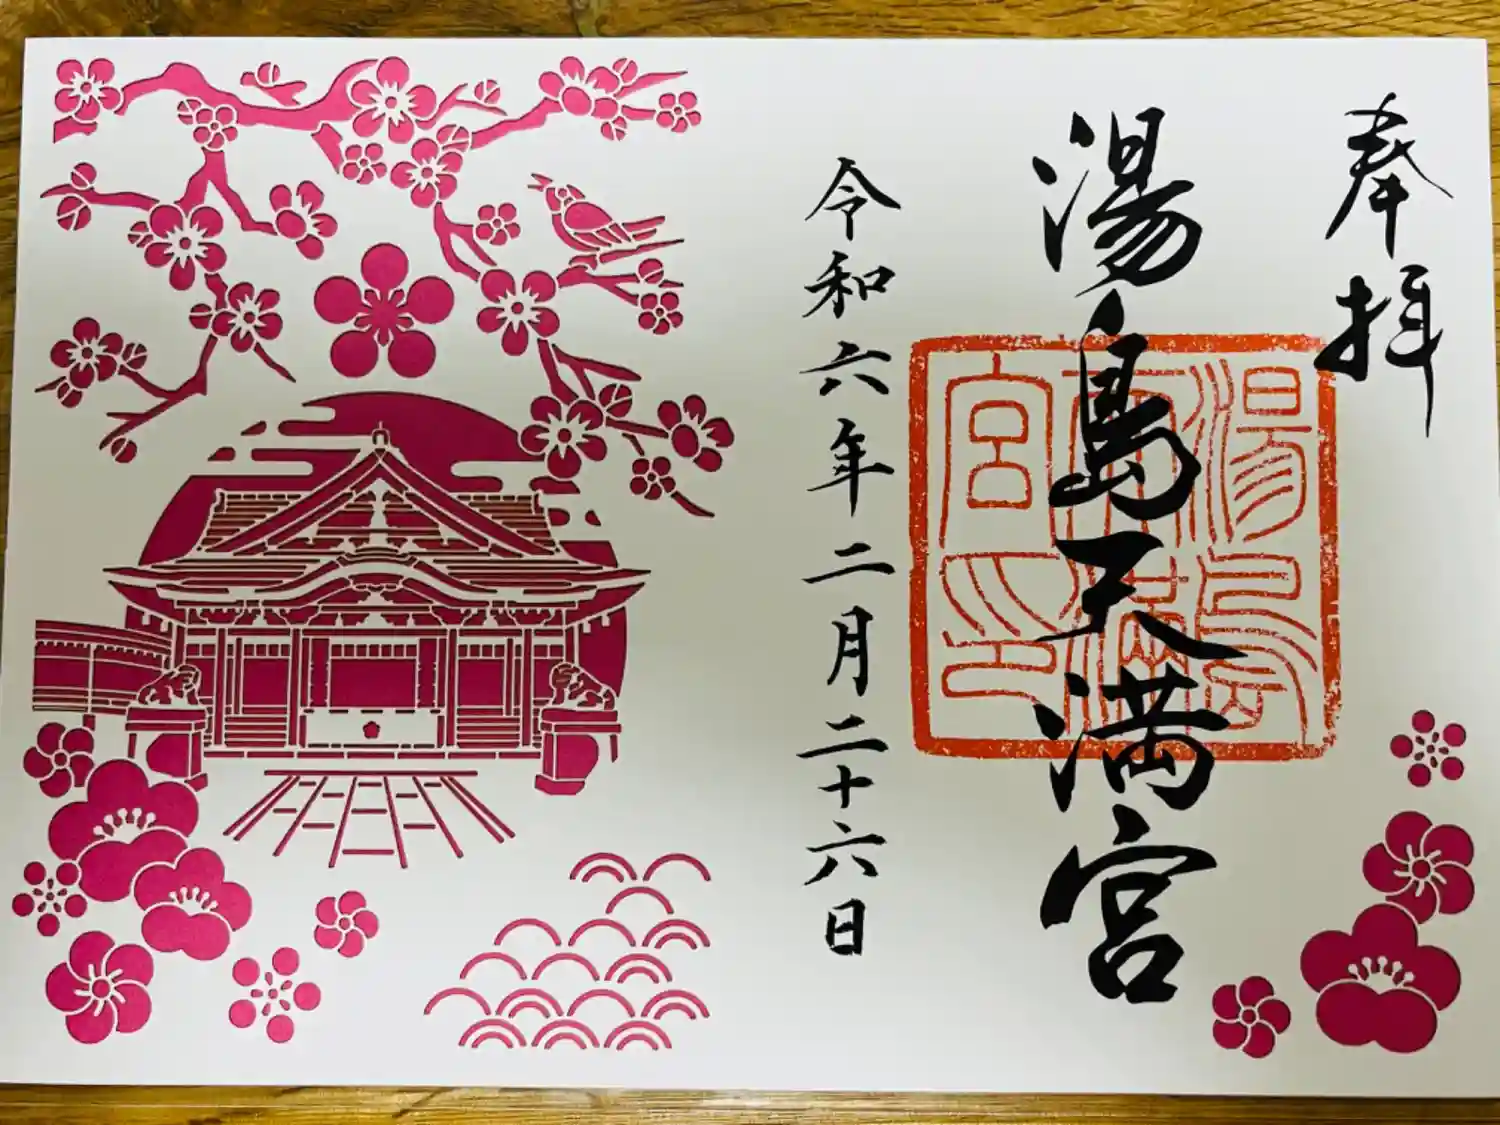 奉拝
湯島天満宮
湯島
天満
宮印
令和六年二月二十六日